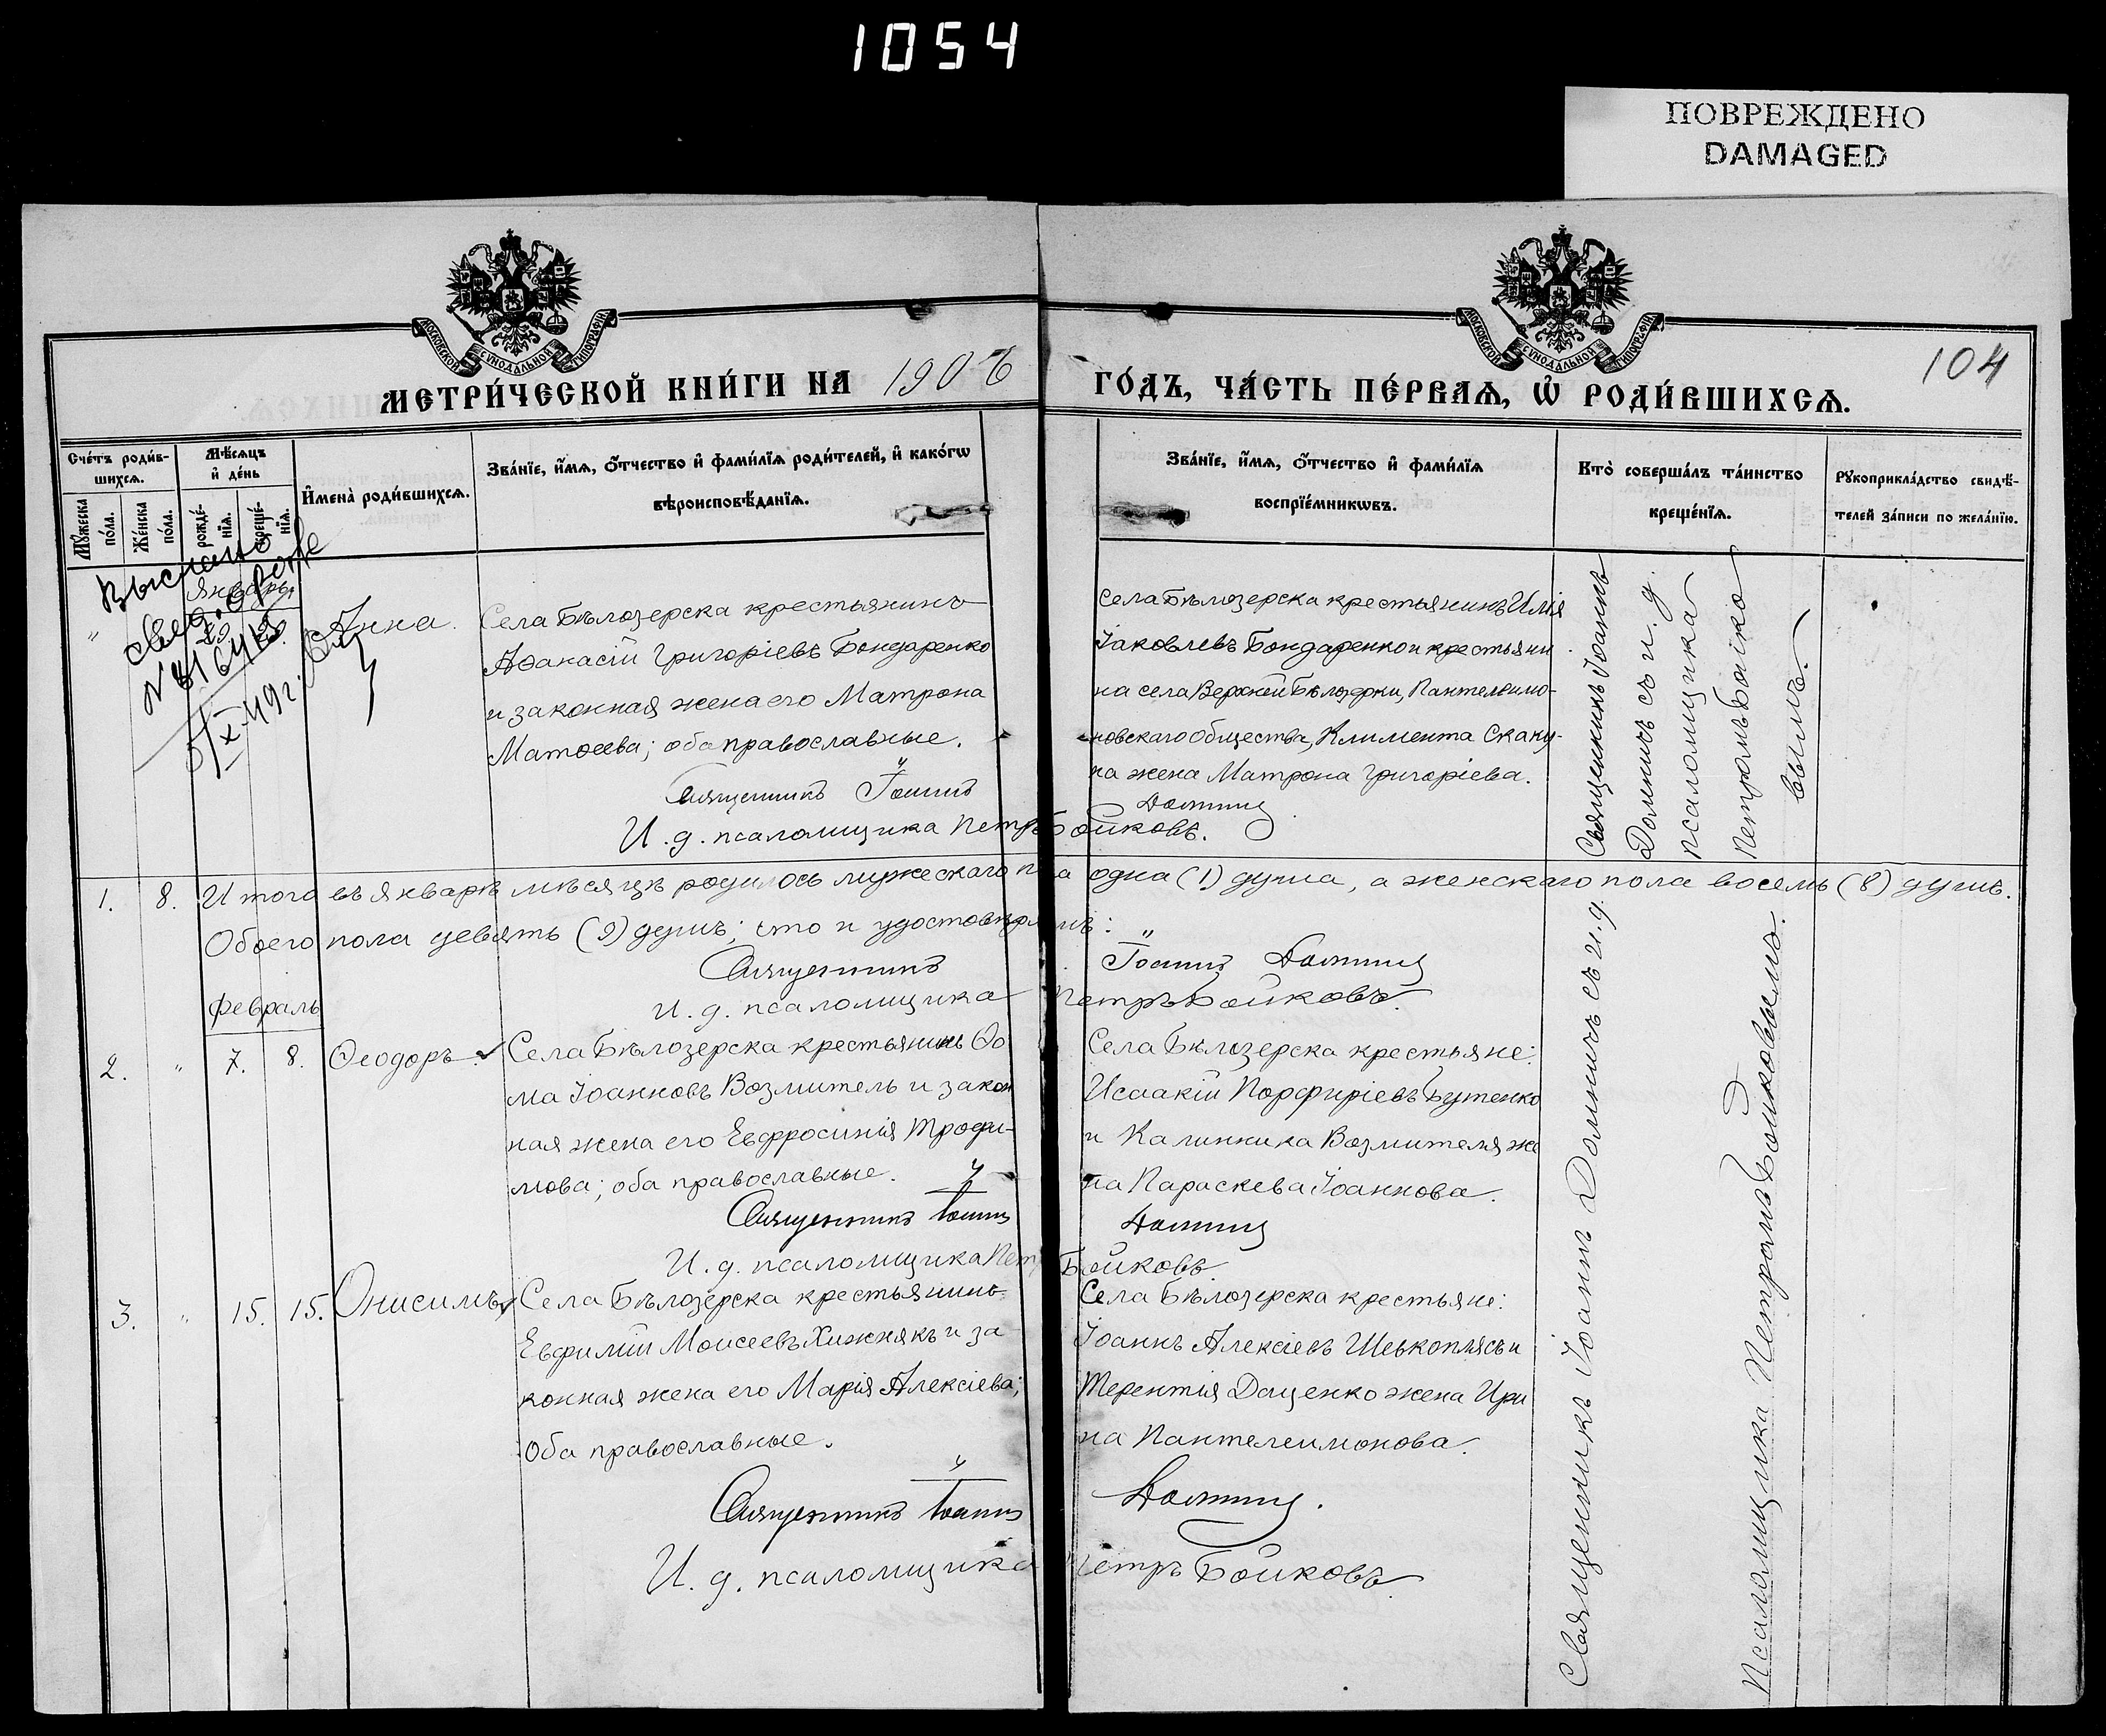 1054
ПОВРЕЖДЕНО
DAMAGED
МОСКОВСКОЙ СѴНОДАЛЬНОЙ ТИПОГРАФІИ
МОСКОВСКОЙ СѴНОДАЛЬНОЙ ТИПОГРАФІИ
104
МЕТРИ́ЧЕСКОЙ КНИ́ГИ НА 1906 ГО́ДЪ, ЧА́СТЬ ПЕ́РВАѦ, Ѡ҆ РОДИ́ВШИХСѦ.
Сче́тъ роди́в-
шихсѧ.
Мꙋ́жеска по́ла.
Же́нска по́ла.
Мѣ́сѧцъ
и҆ де́нь
рожде́-
нїѧ.
креще́-
нїѧ.
И҆мена̀ роди́вшихсѧ.
Зва́нїе, и҆́мѧ, ѻ҆́тчество и҆ фами́лїѧ роди́телей, и҆ како́гѡ
вѣроисповѣ́данїѧ.
Зва́нїе, и҆́мѧ, ѻ҆́тчество и҆ фами́лїѧ
воспрїе́мникѡвъ.
Кто̀ соверша́лъ та́инство
креще́нїѧ.
Рꙋкоприкла́дство свидѣ́-
телей за́писи по жела́нїю.
Выслано
свед. о рожд
Январь.
" Анна.
Села Бѣлозерска крестьянинъ
Аѳанасій Григоріевъ Бондаренко
и законная жена его Матрона
Матѳеева; оба православные.
Священникъ Іоаннъ
И. д. псаломщика Петръ Бойковъ.
Села Бѣлозерска крестьянинъ Илія
Іаковлевъ Бондаренко и крестьяни
на села Верхней Бѣлозерки, Пантелеимо-
новскаго общества, Климента Скаку-
на жена Матрона Григоріева.
Домничъ
Священникъ Іоаннъ
Домничъ съ и. д.
псаломщика
Петромъ Бойко
вымъ.
1. 8. Итого въ Январѣ мѣсяцѣ родилось мужескаго пола одна (1) душа, а женскаго пола восемь (8) душъ.
Обоего пола девять (9) душъ; что и удостовѣряемъ:
Священникъ Іоаннъ Домничъ
И. д. псаломщика Петръ Бойковъ.
Февраль
2. " 7. 8. Ѳеодоръ.
Села Бѣлозерска крестьянинъ Ѳо
ма Іоанновъ Возмитель и закон
ная жена его Евфросинія Трофи-
мова; оба православные.
Священникъ Іоаннъ
И. д. псаломщика Петръ Бойковъ.
Села Бѣлозерска крестьяне:
Исаакій Порфиріевъ Бутенко
и Калинника Возмителя же
на Параскева Іоаннова.
Домничъ
3. " 15. 15. Онисимъ
Села Бѣлозерска крестьянинъ
Евфимій Моисеевъ Хижнякъ и за
конная жена его Марія Алексіева;
Оба православные.
Священникъ Іоаннъ
И. д. псаломщика Петръ Бойковъ
Села Бѣлозерска крестьяне:
Іоаннъ Алексіевъ Шевкоплясъ и
Терентія Доценко жена Ири
на Пантелеимонова.
Домничъ.
Священникъ Іоаннъ Домничъ съ и. д.
Псаломщика Петромъ Бойковымъ.